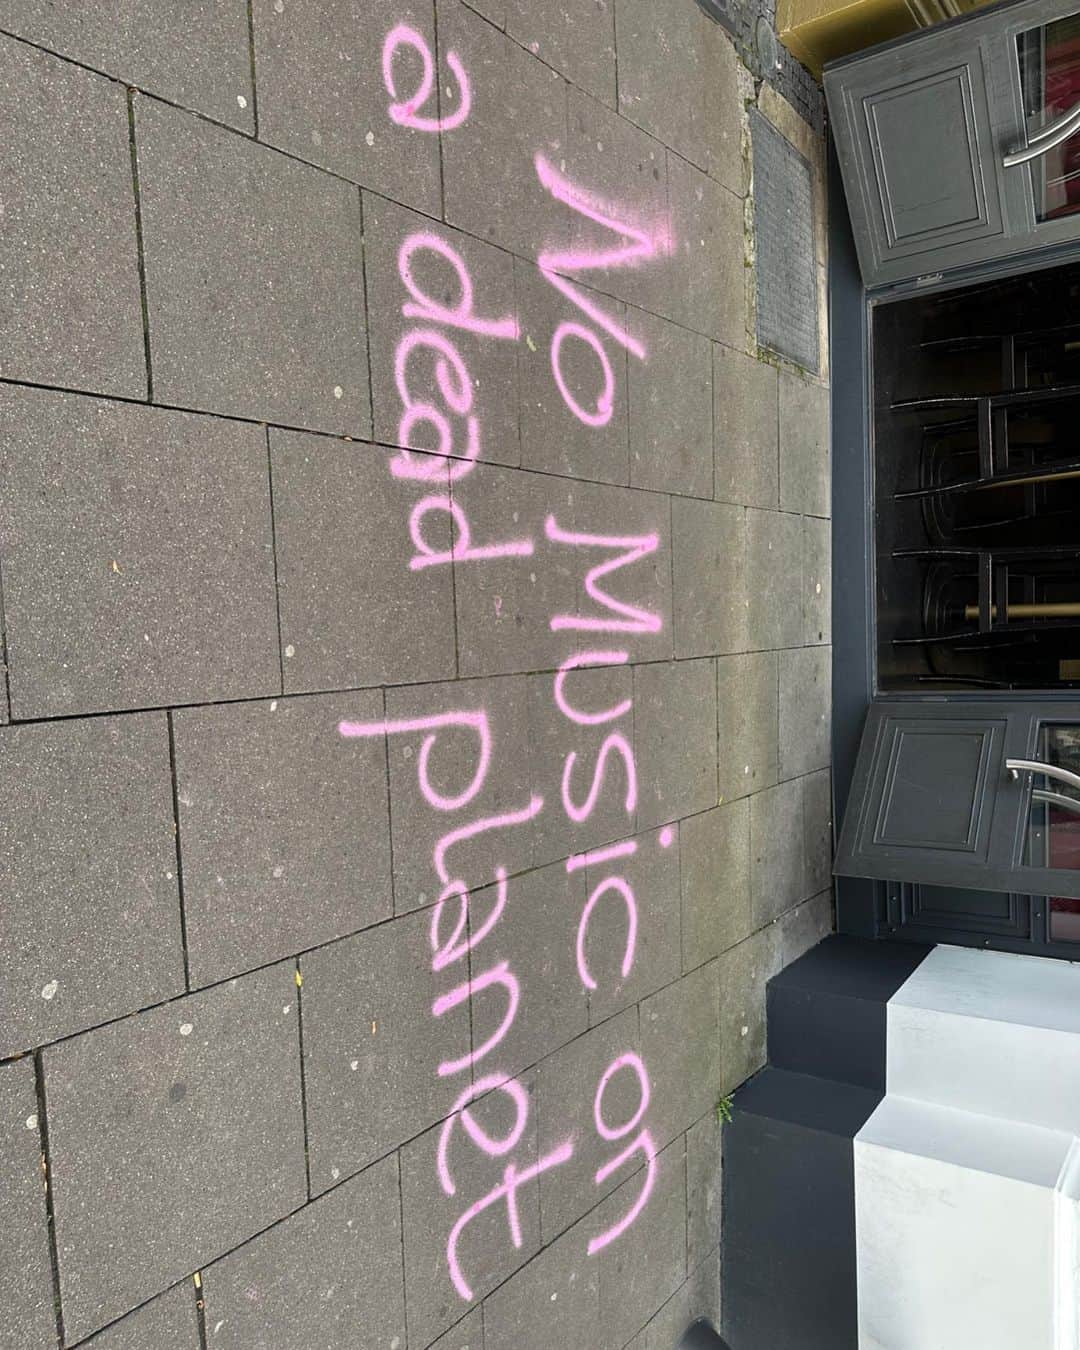 No Music on
a dead planet